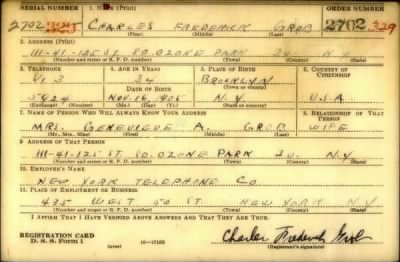 SERIAL NUMBER 1. NAME (Print) ORDER NUMBER
2702 CHARLES FREDERICK GROB 2702 329
(First) (Middle) (Last)
2. ADDRESS (Print)
111-41-125 ST. SO. OZONE PARK 20 N.Y.
(Number and street or R. F. D. number) (Town) (County) (State)
3. TELEPHONE 4. AGE IN YEARS 5. PLACE OF BIRTH 6. COUNTRY OF CITIZENSHIP
34 BROOKLYN
DATE OF BIRTH (Town or county)
5924 NOV. 16 1905 N.Y. U.S.A.
(Exchange) (Number) (Mo.) (Day) (Yr.) (State or country)
7. NAME OF PERSON WHO WILL ALWAYS KNOW YOUR ADDRESS 8. RELATIONSHIP OF THAT PERSON
MRS. GENEVIEVE A. GROB WIFE
(Mr., Mrs., Miss) (First) (Middle) (Last)
9. ADDRESS OF THAT PERSON
111-41-125 ST. SO. OZONE PARK 20. N.Y.
(Number and street or R. F. D. number) (Town) (County) (State)
10. EMPLOYER'S NAME
NEW YORK TELEPHONE CO
11. PLACE OF EMPLOYMENT OR BUSINESS
435 WEST 50 ST NEW YORK N.Y.
(Number and street or R. F. D. number) (Town) (County) (State)
I AFFIRM THAT I HAVE VERIFIED ABOVE ANSWERS AND THAT THEY ARE TRUE.
REGISTRATION CARD
D. S. S. Form 1 (over) 16—17105 Charles Frederick Grob
(Registrant's signature)